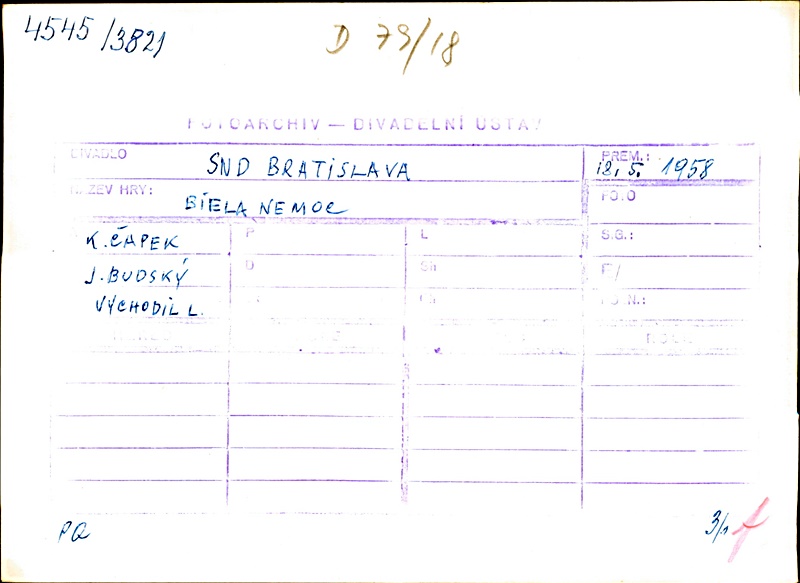 4545/3821
D 79/18
FOTOARCHIV — DIVADELNÍ ÚSTAV
DIVADLO SND BRATISLAVA PREM.: 12. 5. 1958
NÁZEV HRY: BIELA NEMOC FOTO
K. ČAPEK P L S.G.:
J. BUDSKÝ D Sh F/
VYCHODIL L.
PQ